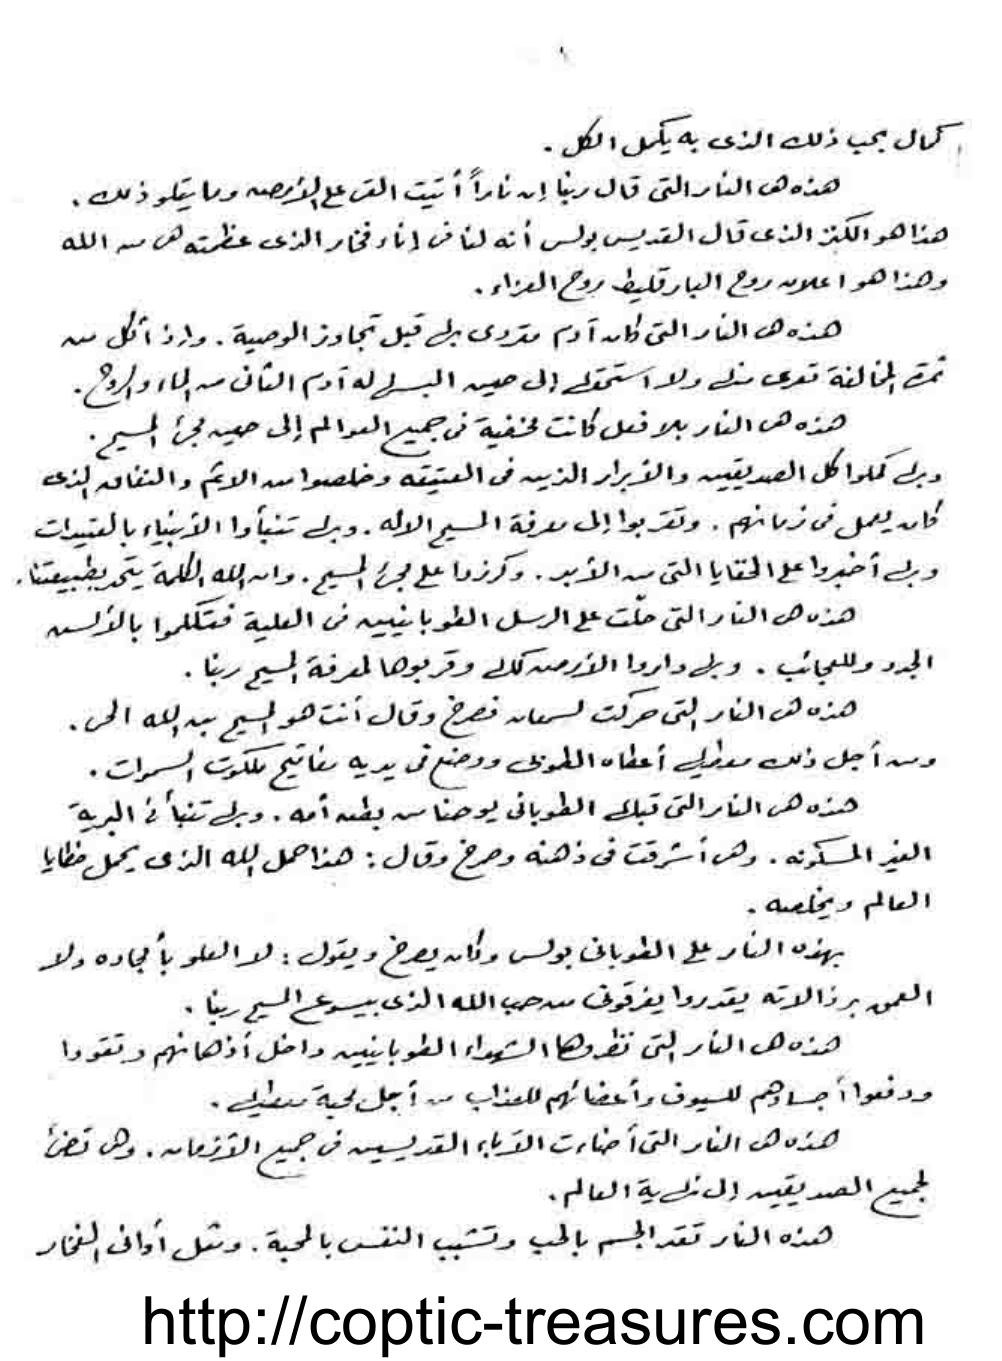 ١
كمال بحب ذلك الذى به يكمل الكل .
هذه هى النار التى قال ربنا إن ناراً أتيت القى على الأرض وما يتلو ذلك .
هذا هو الكنز الذى قال القديس بولس أنه لنا فى إناء فخار الذى عظمته هى من الله
وهذا هو اعلان روح البارقليط روح العزاء .
هذه هى النار التى كان آدم متردى بها قبل تجاوز الوصية . وإذ أكل من
ثمرة المخالفة تعرى منها ولا استحقها إلى حين البسها له آدم الثانى من الماء والروح .
هذه هى النار بلا فعل كانت مخفية فى جميع العوالم إلى حين مجئ المسيح .
وبها كملوا كل الصديقين والأبرار الذين فى العتيقه وخلصوا من الاثم والنفاق الذى
كان يعمل فى زمانهم . وتقربوا إلى معرفة المسيح الاله . وبها تنبأوا الأنبياء بالعتيدات
وبها أخبروا على الخفايا التى من الأبد . وكرزوا على مجئ المسيح . وان الله الكلمة يتحد بطبيعتنا .
هذه هى النار التى حلّت على الرسل الطوبانيين فى العلية فتكلموا بالألسن
الجدد وللعجائب . وبها داروا الأرض كلها وقربوها لمعرفة المسيح ربنا .
هذه هى النار التى حركت لسمعان فصرخ وقال أنت هو المسيح بن الله الحى .
ومن أجل ذلك معطيها أعطاه الطوبى ووضع فى يديه مفاتيح ملكوت السموات .
هذه هى النار التى قبلها الطوبانى يوحنا من بطن أمه . وبها تنبأ فى البرية
الغير المسكونه . وهى أشرقت فى ذهنه وصرخ وقال : هذا حمل الله الذى يحمل خطايا
العالم ويخلصه .
بهذه النار على الطوبانى بولس وكان يصرخ ويقول : لا العلو بأمجاده ولا
العمق برذالاته يقدروا يفرقونى من حب الله الذى بيسوع المسيح ربنا .
هذه هى النار التى نظروها الشهداء الطوبانيين داخل أذهانهم وتقووا
ودفعوا أجسادهم للسيوف وأعضائهم للعذاب من أجل محبة معطيها .
هذه هى النار التى أضاءت الآباء القديسين فى جميع الأزمان . وهى تضئ
لجميع الصديقين إلى نهاية العالم .
هذه النار تقد الجسم بالحب وتشبب النفس بالمحبة . ومثل أوانى الفخار
http://coptic-treasures.com